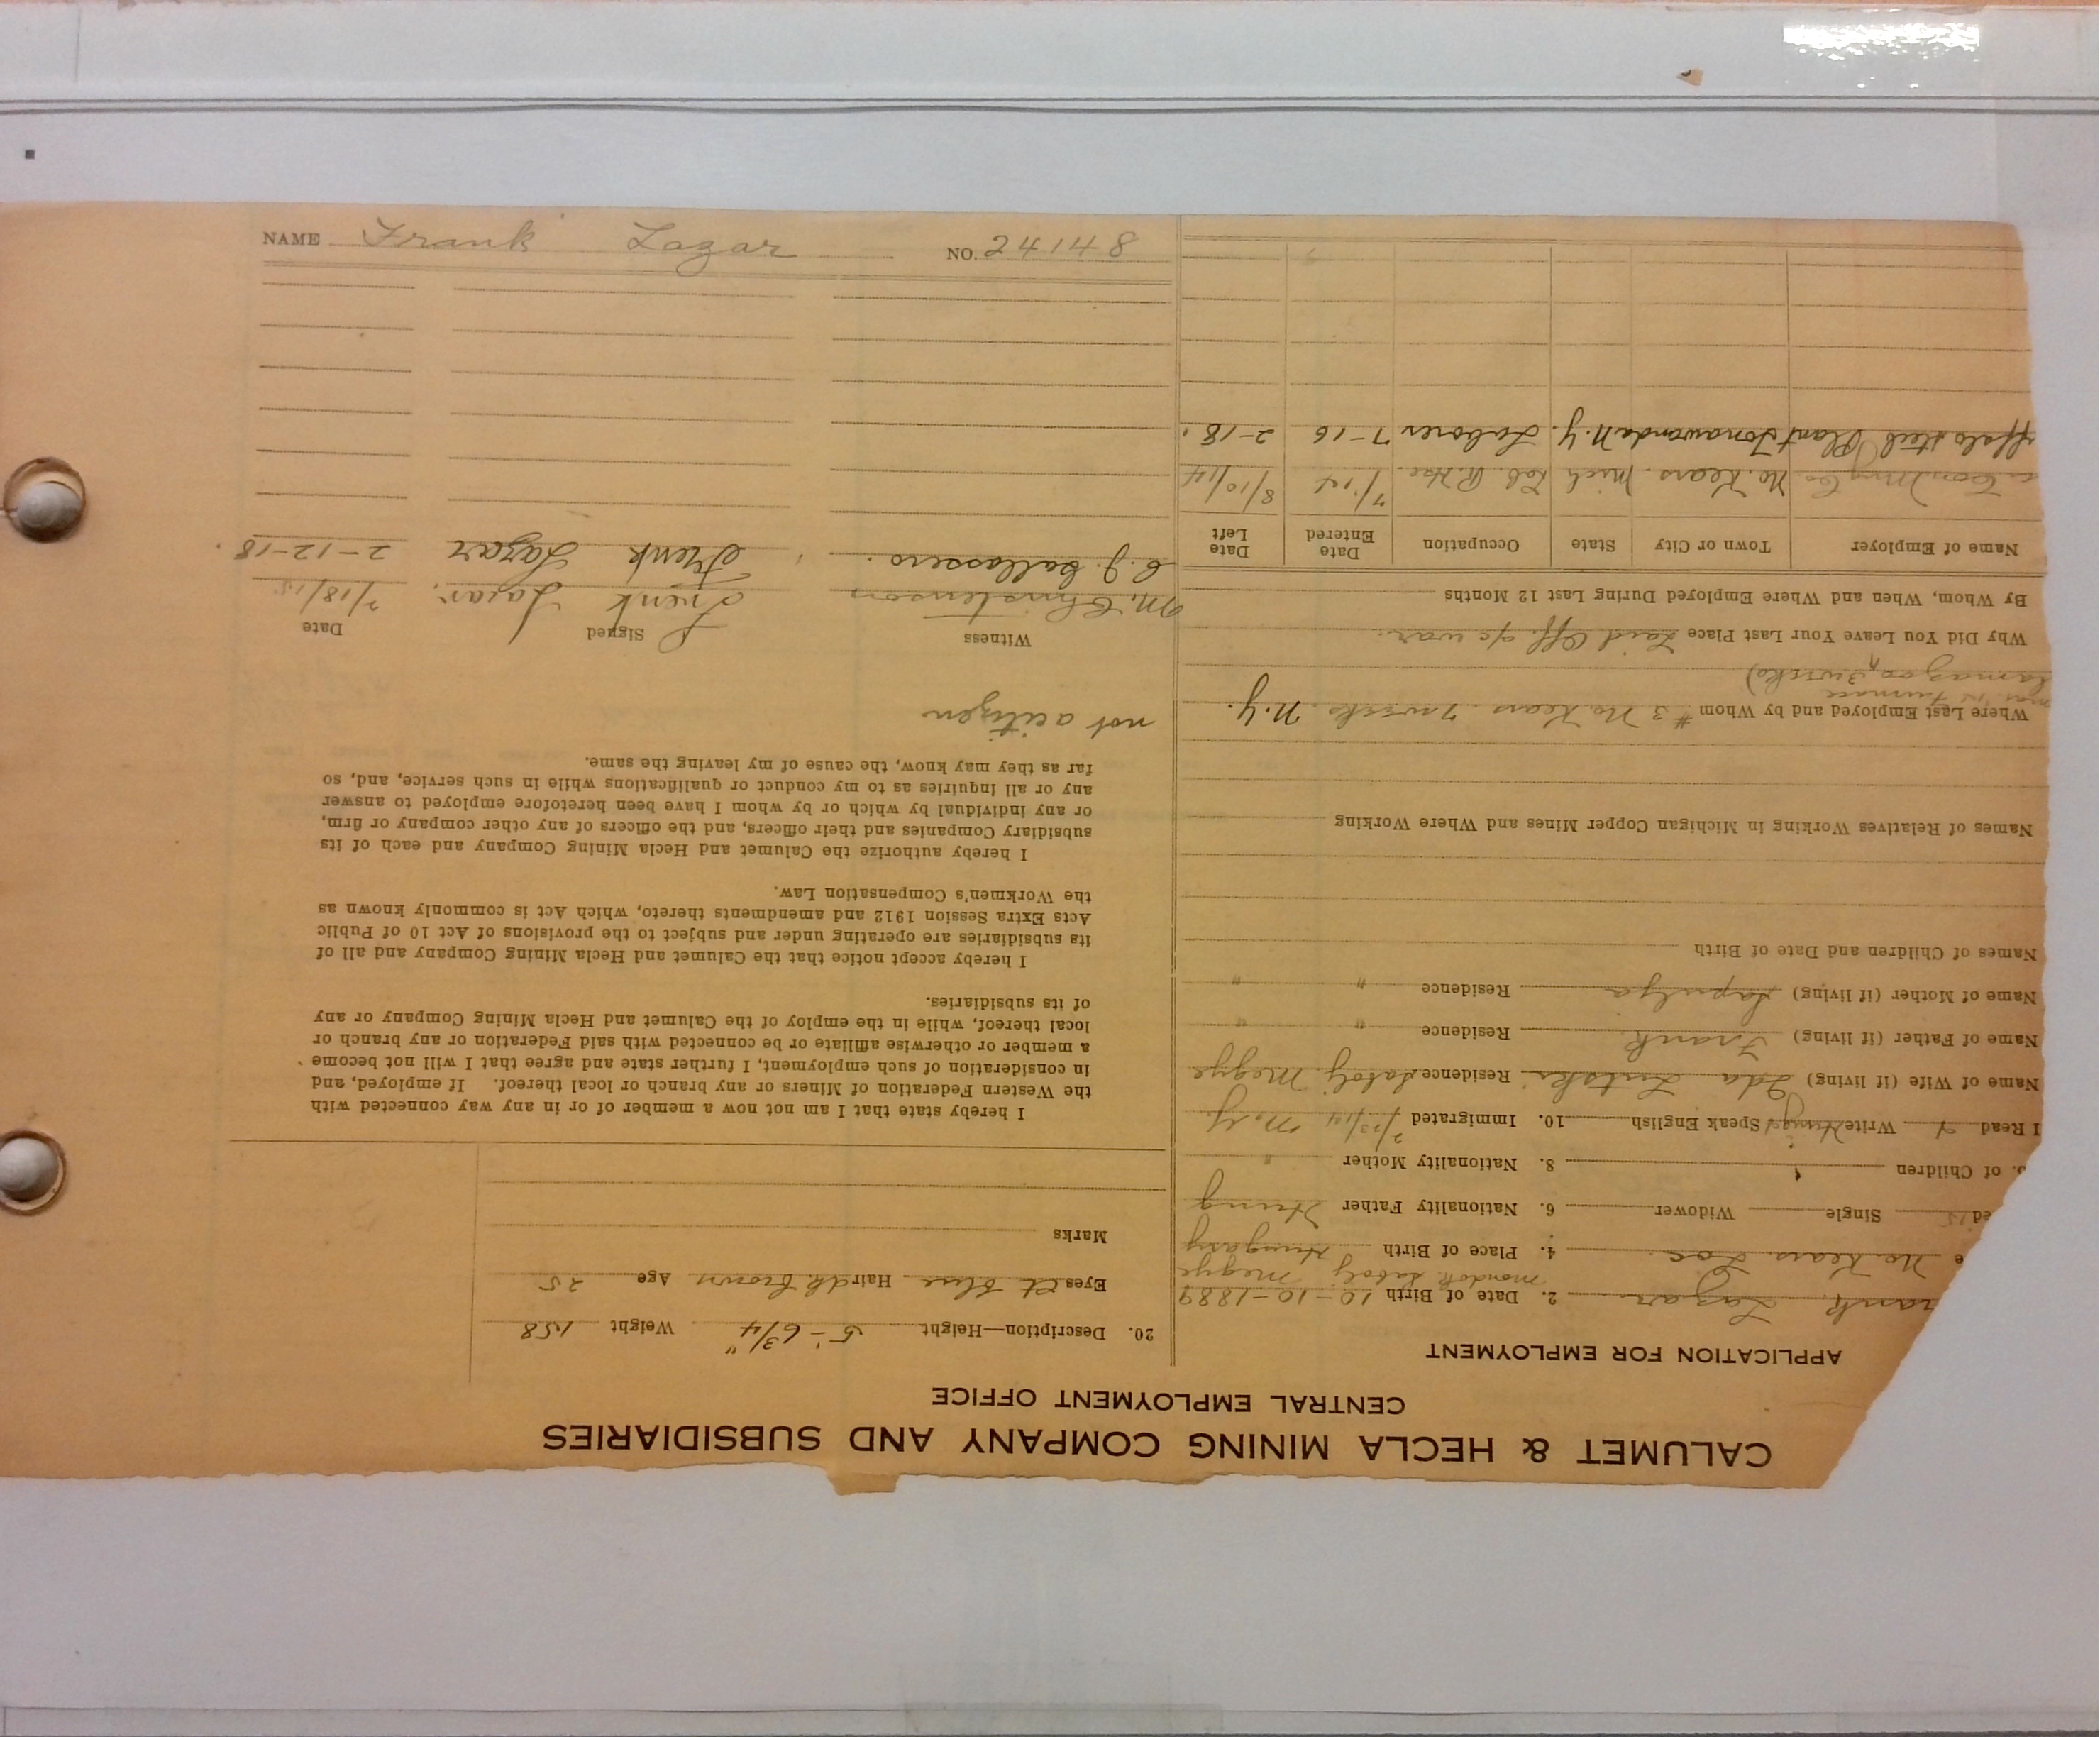 CALUMET & HECLA MINING COMPANY AND SUBSIDIARIES
CENTRAL EMPLOYMENT OFFICE
APPLICATION FOR EMPLOYMENT
rank Lazar 2. Date of Birth 10-10-1889
e No. Kears. Loc. 4. Place of Birth Hungary
ed Single Widower 6. Nationality Father Hung
of Children 8. Nationality Mother "
I Read Write Speak English 10. Immigrated N.Y.
Name of Wife (if living) Ida Residence Megye
Name of Father (if living) Frank Residence " "
Name of Mother (if living) Residence " "
Names of Children and Date of Birth
Names of Relatives Working in Michigan Copper Mines and Where Working
Where Last Employed and by Whom #3 No. Kears. 7 weeks. N.Y.
furnace
3 weeks)
Why Did You Leave Your Last Place Laid Off. a/c war.
By Whom, When and Where Employed During Last 12 Months
Name of Employer Town or City State Occupation Date Entered Date Left
No. Kears. Mich 8/10/14
ffalo steel Plant Tonawanda N.Y. Laborer 7-16 2-18.
20. Description—Height 5'-6 3/4" Weight 158
Eyes Lt blue Hair dk brown Age 25
Marks
I hereby state that I am not now a member of or in any way connected with
the Western Federation of Miners or any branch or local thereof. If employed, and
in consideration of such employment, I further state and agree that I will not become
a member or otherwise affiliate or be connected with said Federation or any branch or
local thereof, while in the employ of the Calumet and Hecla Mining Company or any
of its subsidiaries.
I hereby accept notice that the Calumet and Hecla Mining Company and all of
its subsidiaries are operating under and subject to the provisions of Act 10 of Public
Acts Extra Session 1912 and amendments thereto, which Act is commonly known as
the Workmen's Compensation Law.
I hereby authorize the Calumet and Hecla Mining Company and each of its
subsidiary Companies and their officers, and the officers of any other company or firm,
or any individual by which or by whom I have been heretofore employed to answer
any or all inquiries as to my conduct or qualifications while in such service, and, so
far as they may know, the cause of my leaving the same.
not a citizen
Witness Signed Date
M. Christenson Frenk Lazar.
C. J. Frenk Lazar 2-12-18.
NAME Frank Lazar NO. 24148